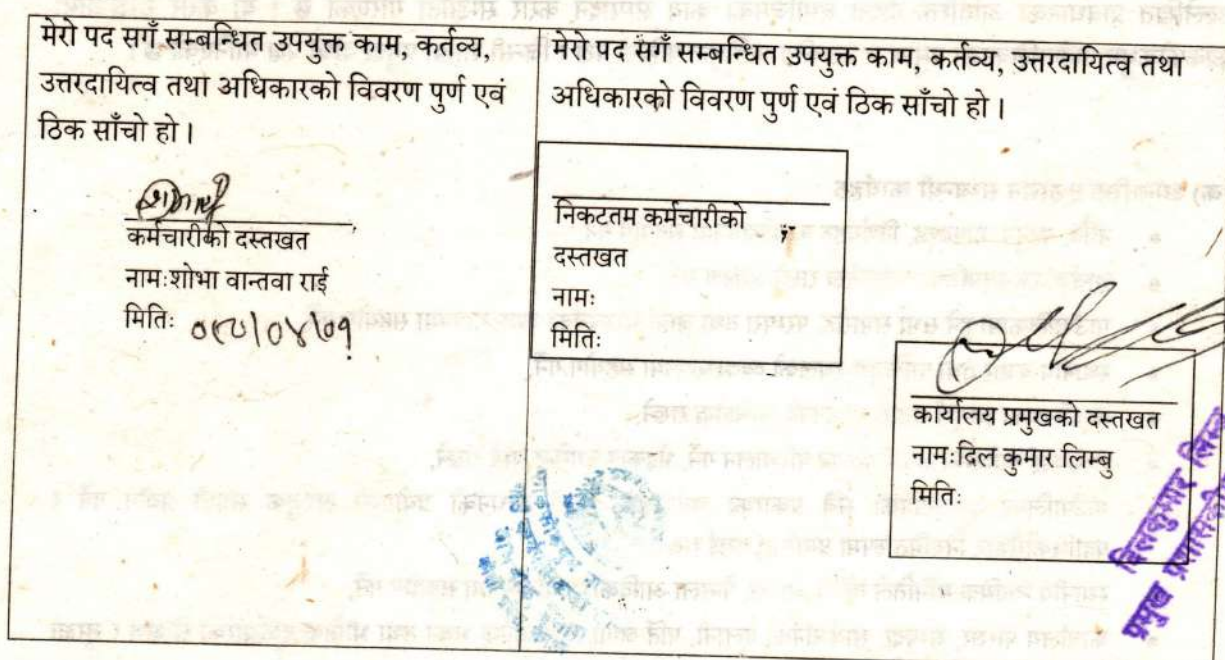 मेरो पद सगँ सम्बन्धित उपयुक्त काम, कर्तव्य,
उत्तरदायित्व तथा अधिकारको विवरण पुर्ण एवं
ठिक साँचो हो ।
कर्मचारीको दस्तखत
नाम:शोभा वान्तवा राई
मिति:
मेरो पद सगँ सम्बन्धित उपयुक्त काम, कर्तव्य, उत्तरदायित्व तथा
अधिकारको विवरण पुर्ण एवं ठिक साँचो हो ।
निकटतम कर्मचारीको
दस्तखत
नाम:
मिति:
कार्यालय प्रमुखको दस्तखत
नाम:दिल कुमार लिम्बु
मिति:
दिलकुमार लिम्बु
प्रमुख प्रशासकीय